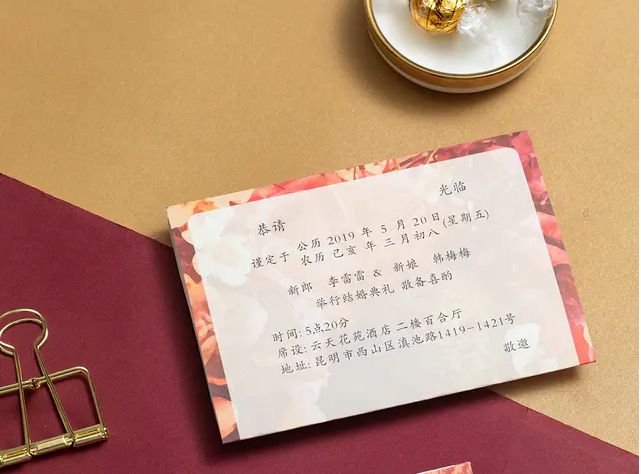 恭请 光临
谨定于 公历 2019 年 5 月 20日(星期五)
农历 己亥 年 三月初八
新郎 李雷雷 & 新娘 韩梅梅
举行结婚典礼 敬备喜酌
时间:5点20分
席设:云天花苑酒店 二楼百合厅
地址:昆明市西山区滇池路1419-1421号
敬邀